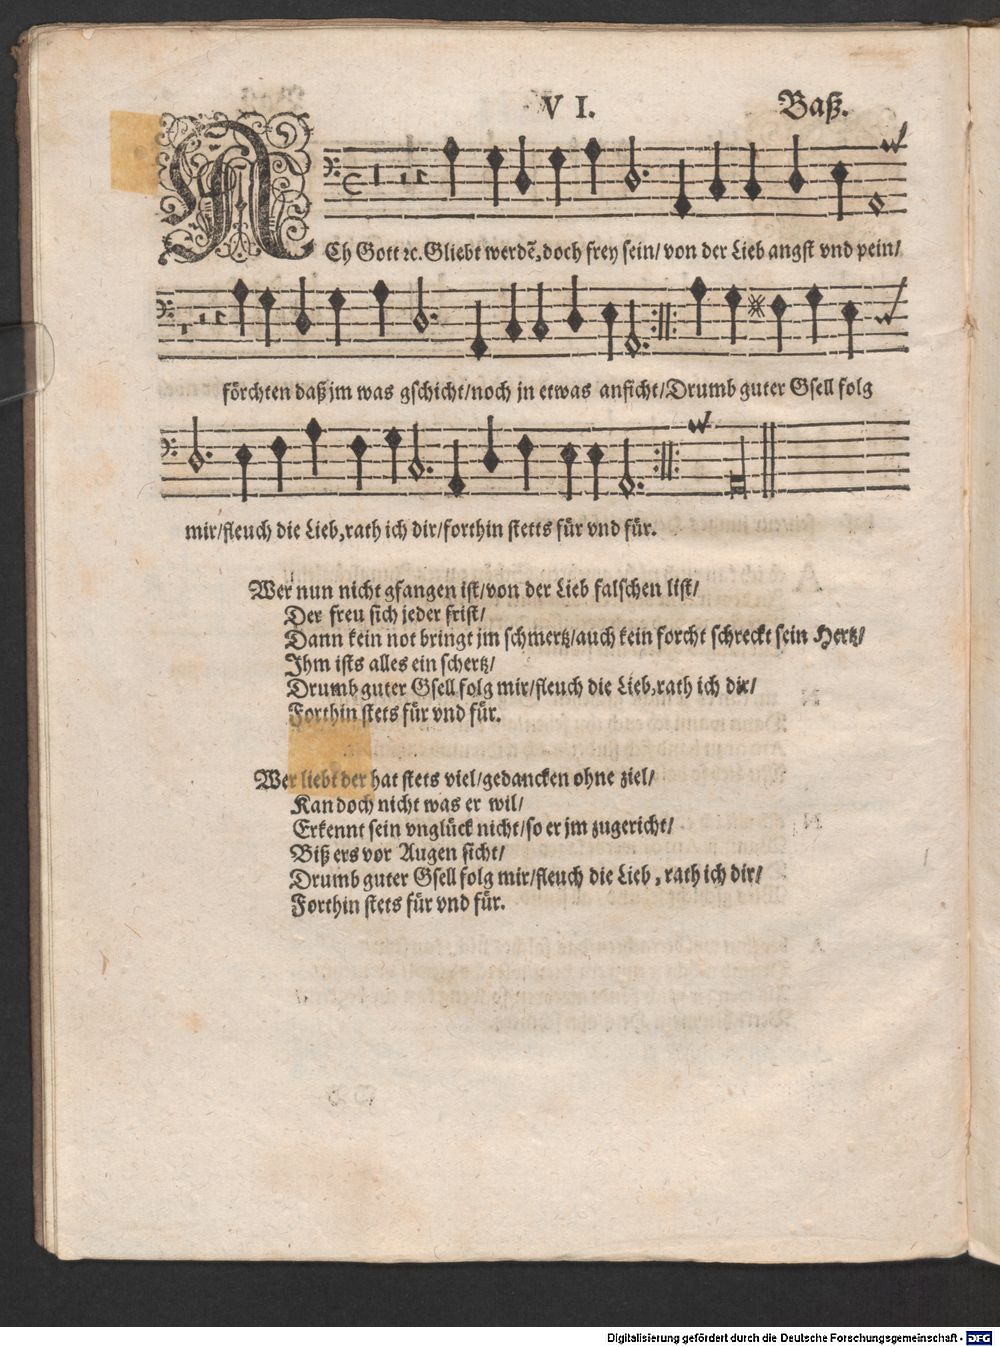 VI. Baß.
ACh Gott ꝛc. Gliebt werdẽ, doch frey sein/ von der Lieb angst vnd pein/
förchten daß jm was gschicht/noch jn etwas anficht/Drumb guter Gsell folg
mir/fleuch die Lieb, rath ich dir/forthin stetts für vnd für.
Wer nun nicht gfangen ist/von der Lieb falschen list/
Der freu sich jeder frist/
Dann kein not bringt jm schmertz/auch kein forcht schreckt sein Hertz/
Ihm ists alles ein schertz/
Drumb guter Gsell folg mir/fleuch die Lieb, rath ich dir/
Forthin stets für vnd für.
Wer liebt der hat stets viel/gedancken ohne ziel/
Kan doch nicht was er wil/
Erkennt sein vnglück nicht/so er jm zugericht/
Biß ers vor Augen sicht/
Drumb guter Gsell folg mir/fleuch die Lieb, rath ich dir/
Forthin stets für vnd für.
Digitalisierung gefördert durch die Deutsche Forschungsgemeinschaft - DFG